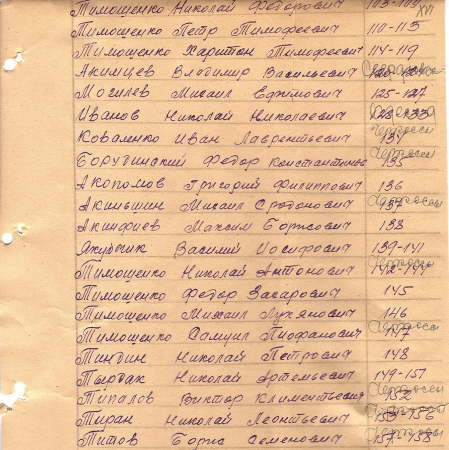 Тимошенко Николай Федорович 103-109
XVI
Тимошенко Петр Тимофеевич 110-113
Тимошенко Харитон Тимофеевич 114-119
Акимцев Владимир Васильевич
Могилев Михаил Ефимович 125-127
Иванов Николай Николаевич 128-133
Коваленко Иван Лаврентьевич 134
Федор Константинов 135
Акопомов Григорий Филиппович 136
Акиньшин Михаил 137
Акинфиев Максим Борисович 138
Якубчик Василий Иосифович 139-141
Тимошенко Николай Антонович 142-144
Тимошенко Федор Захарович 145
Тимошенко Михаил Лукянович 146
Тимошенко Самуил Пиофанович 147
Тиндин Николай Петрович 148
Тырдах Николай Артемьевич 149-151
Типалов Виктор Климентьевич 152
Тиран Николай Леонтьевич 153-156
Титов Борис Семенович 157-158